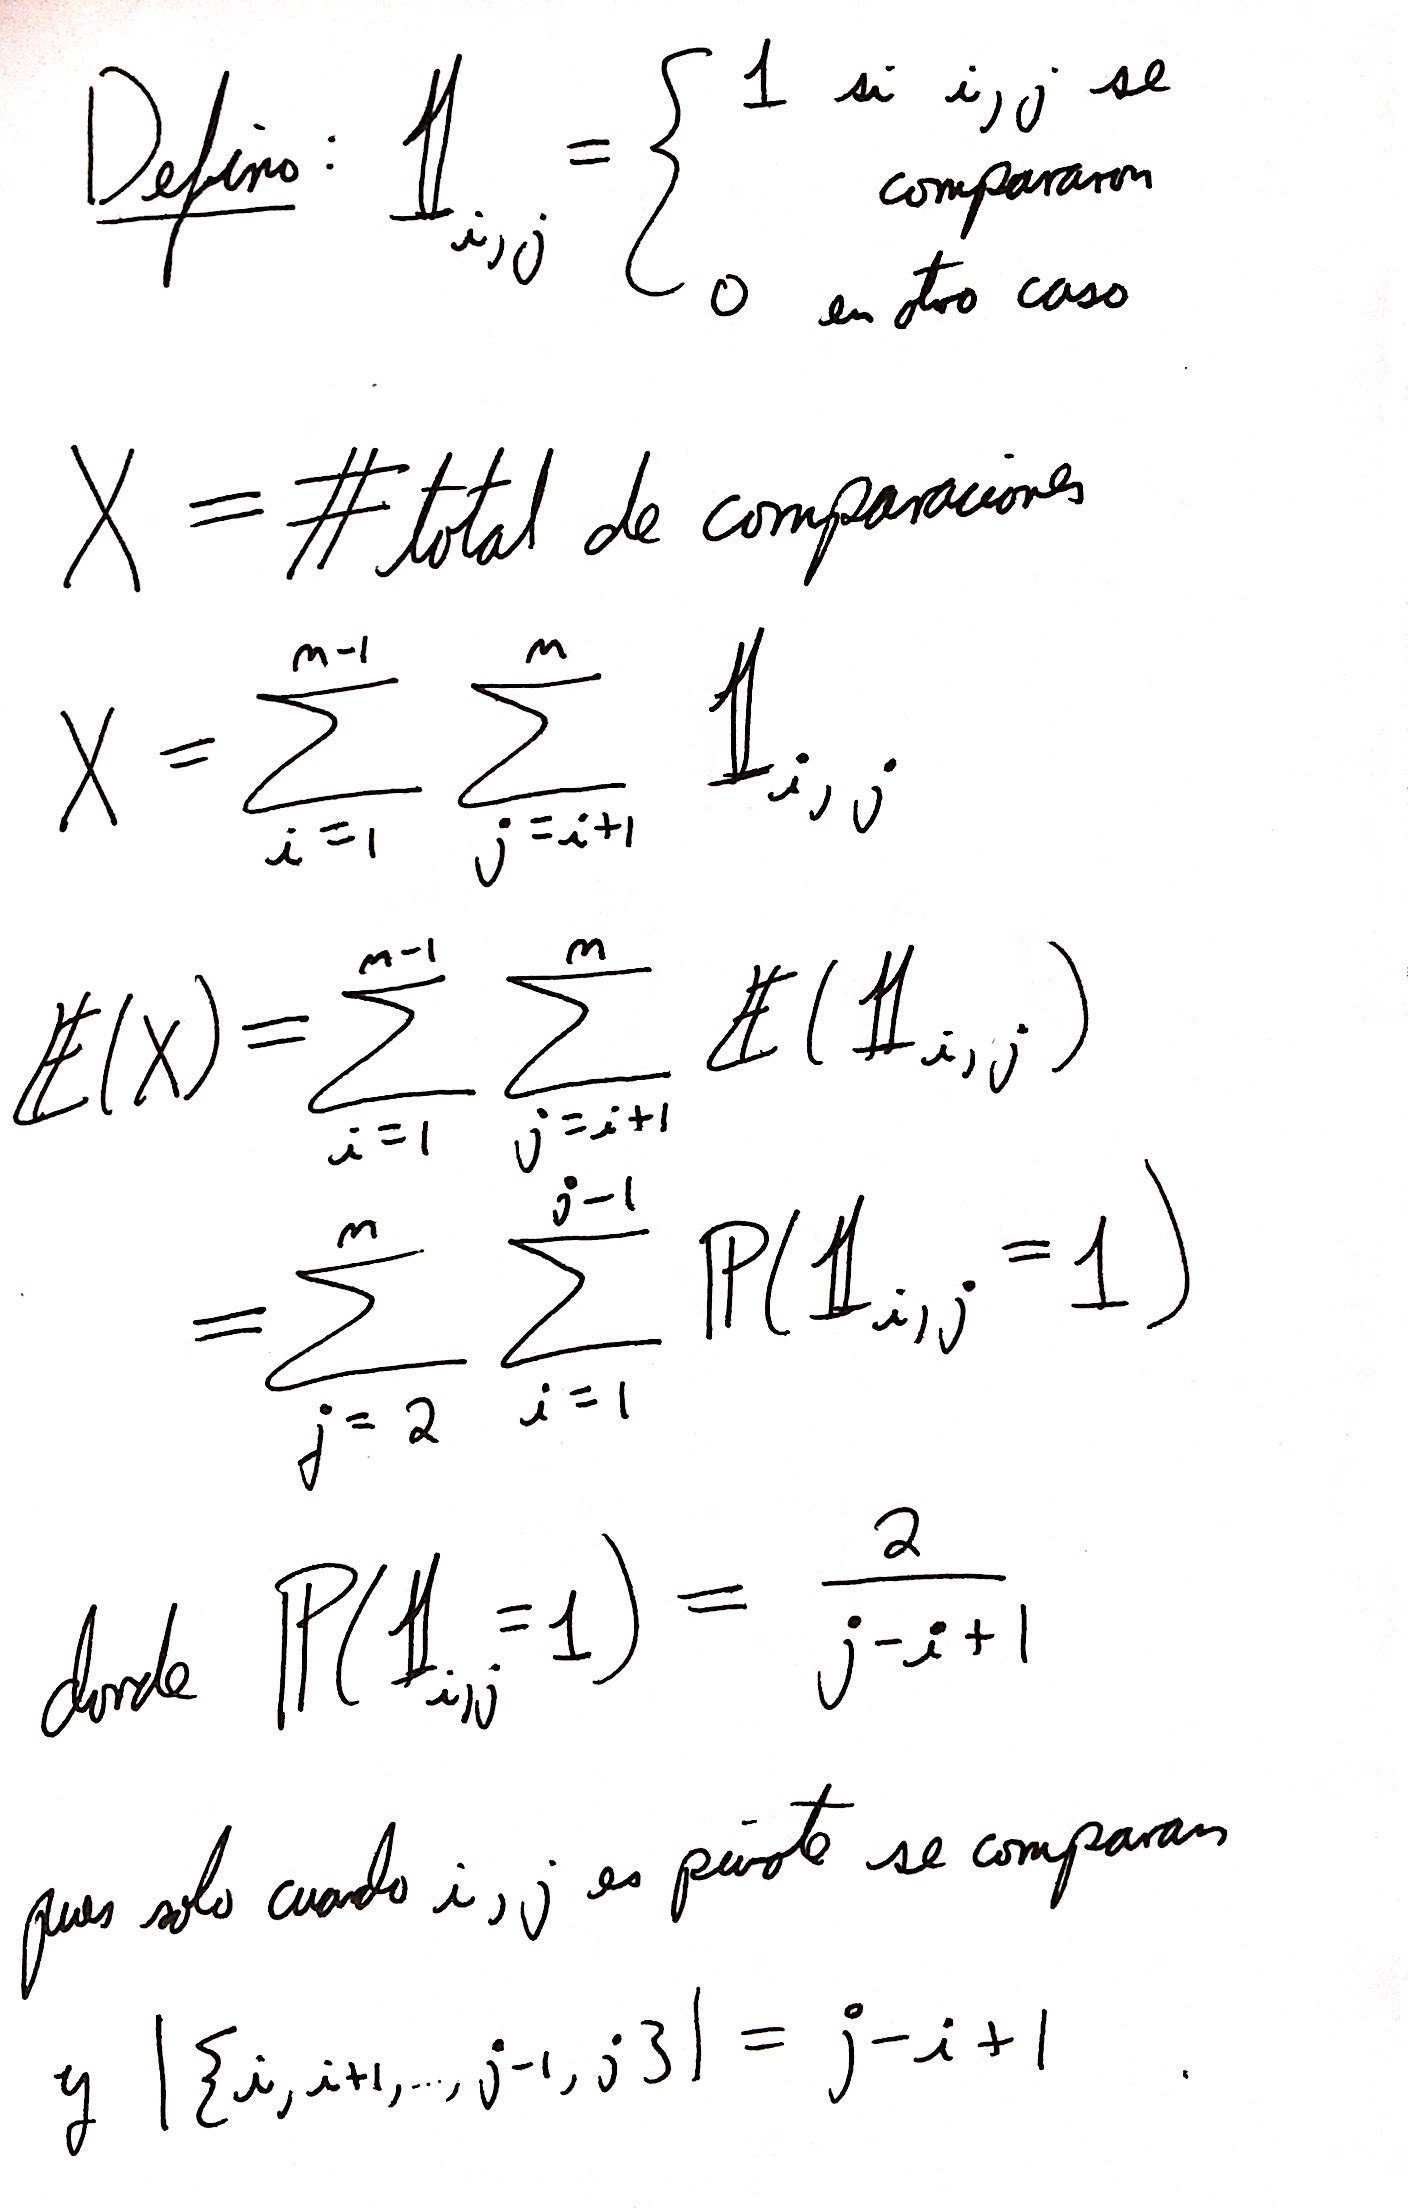 Defino: 𝟙_{i,j} = { 1 si i,j se
compararon
0 en otro caso
X = # total de comparaciones
X = \sum_{i=1}^{n-1} \sum_{j=i+1}^{n} 𝟙_{i,j}
𝔼(X) = \sum_{i=1}^{n-1} \sum_{j=i+1}^{n} 𝔼(𝟙_{i,j})
= \sum_{j=2}^{n} \sum_{i=1}^{j-1} ℙ(𝟙_{i,j} = 1)
donde ℙ(𝟙_{i,j} = 1) = \frac{2}{j-i+1}
pues solo cuando i,j es pivote se comparan
y |{i, i+1, ..., j-1, j}| = j-i+1.